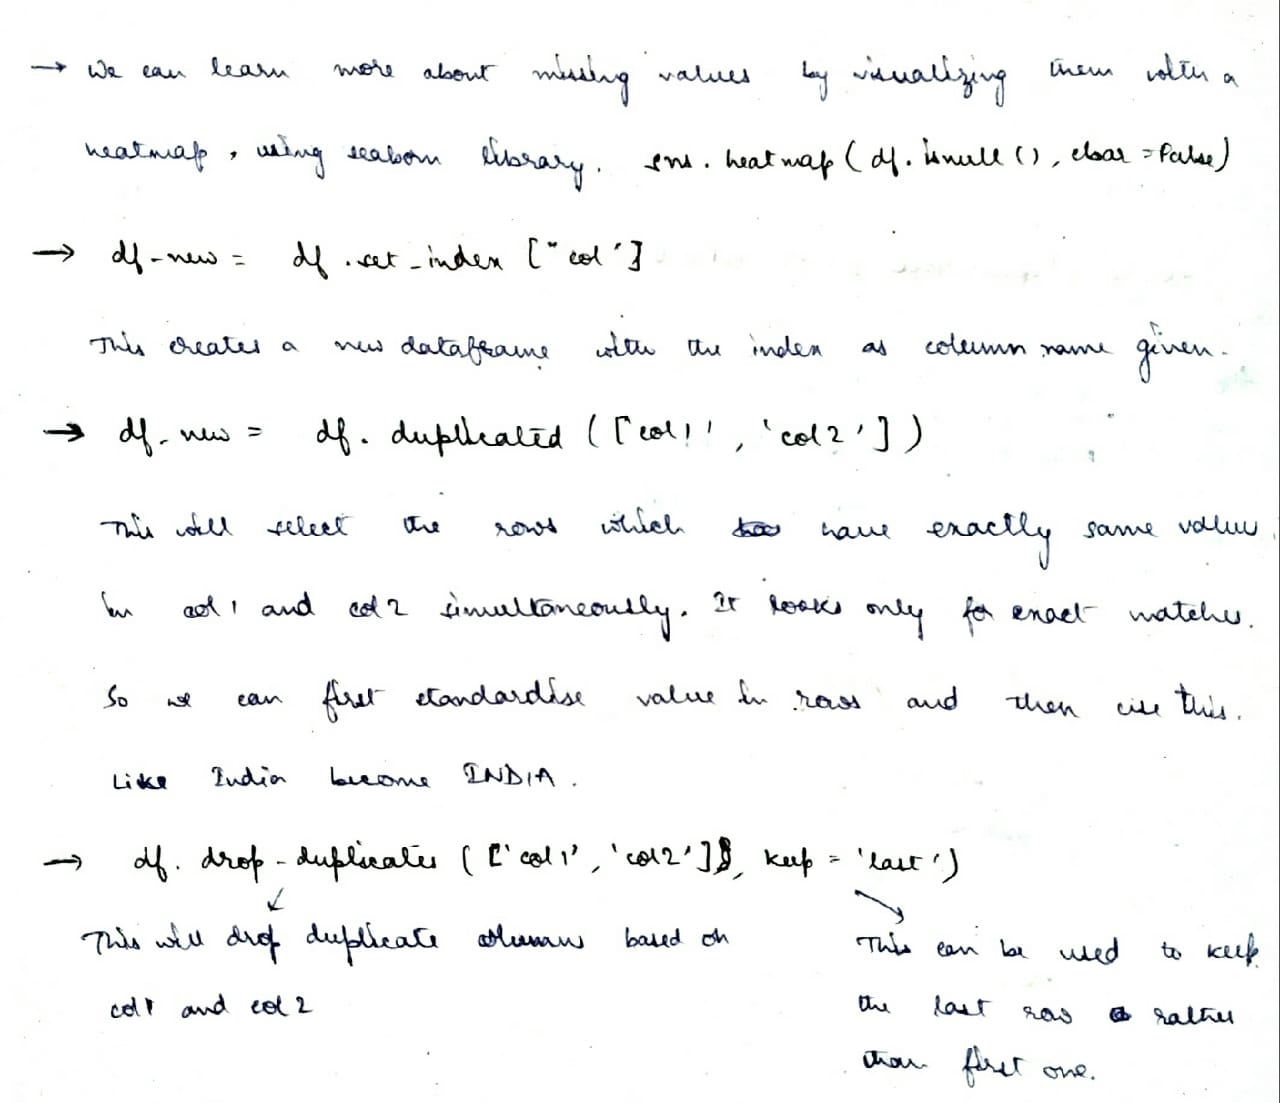 → We can learn more about missing values by visualizing them with a
heatmap, using seaborn library. sns. heatmap (df. isnull (), cbar = False)
→ df_new = df .set_index ["col']
This creates a new dataframe with the index as column name given.
→ df_new = df. duplicated (['col1', 'col2'])
This will select the rows which have exactly same value
in col1 and col2 simultaneously. It looks only for exact matches.
So we can first standardise value in rows and then use this.
Like India become INDIA.
→ df. drop_duplicates (['col1', 'col2'], keep = 'last')
This will drop duplicate columns based on
col1 and col2
This can be used to keep
the last row rather
than first one.